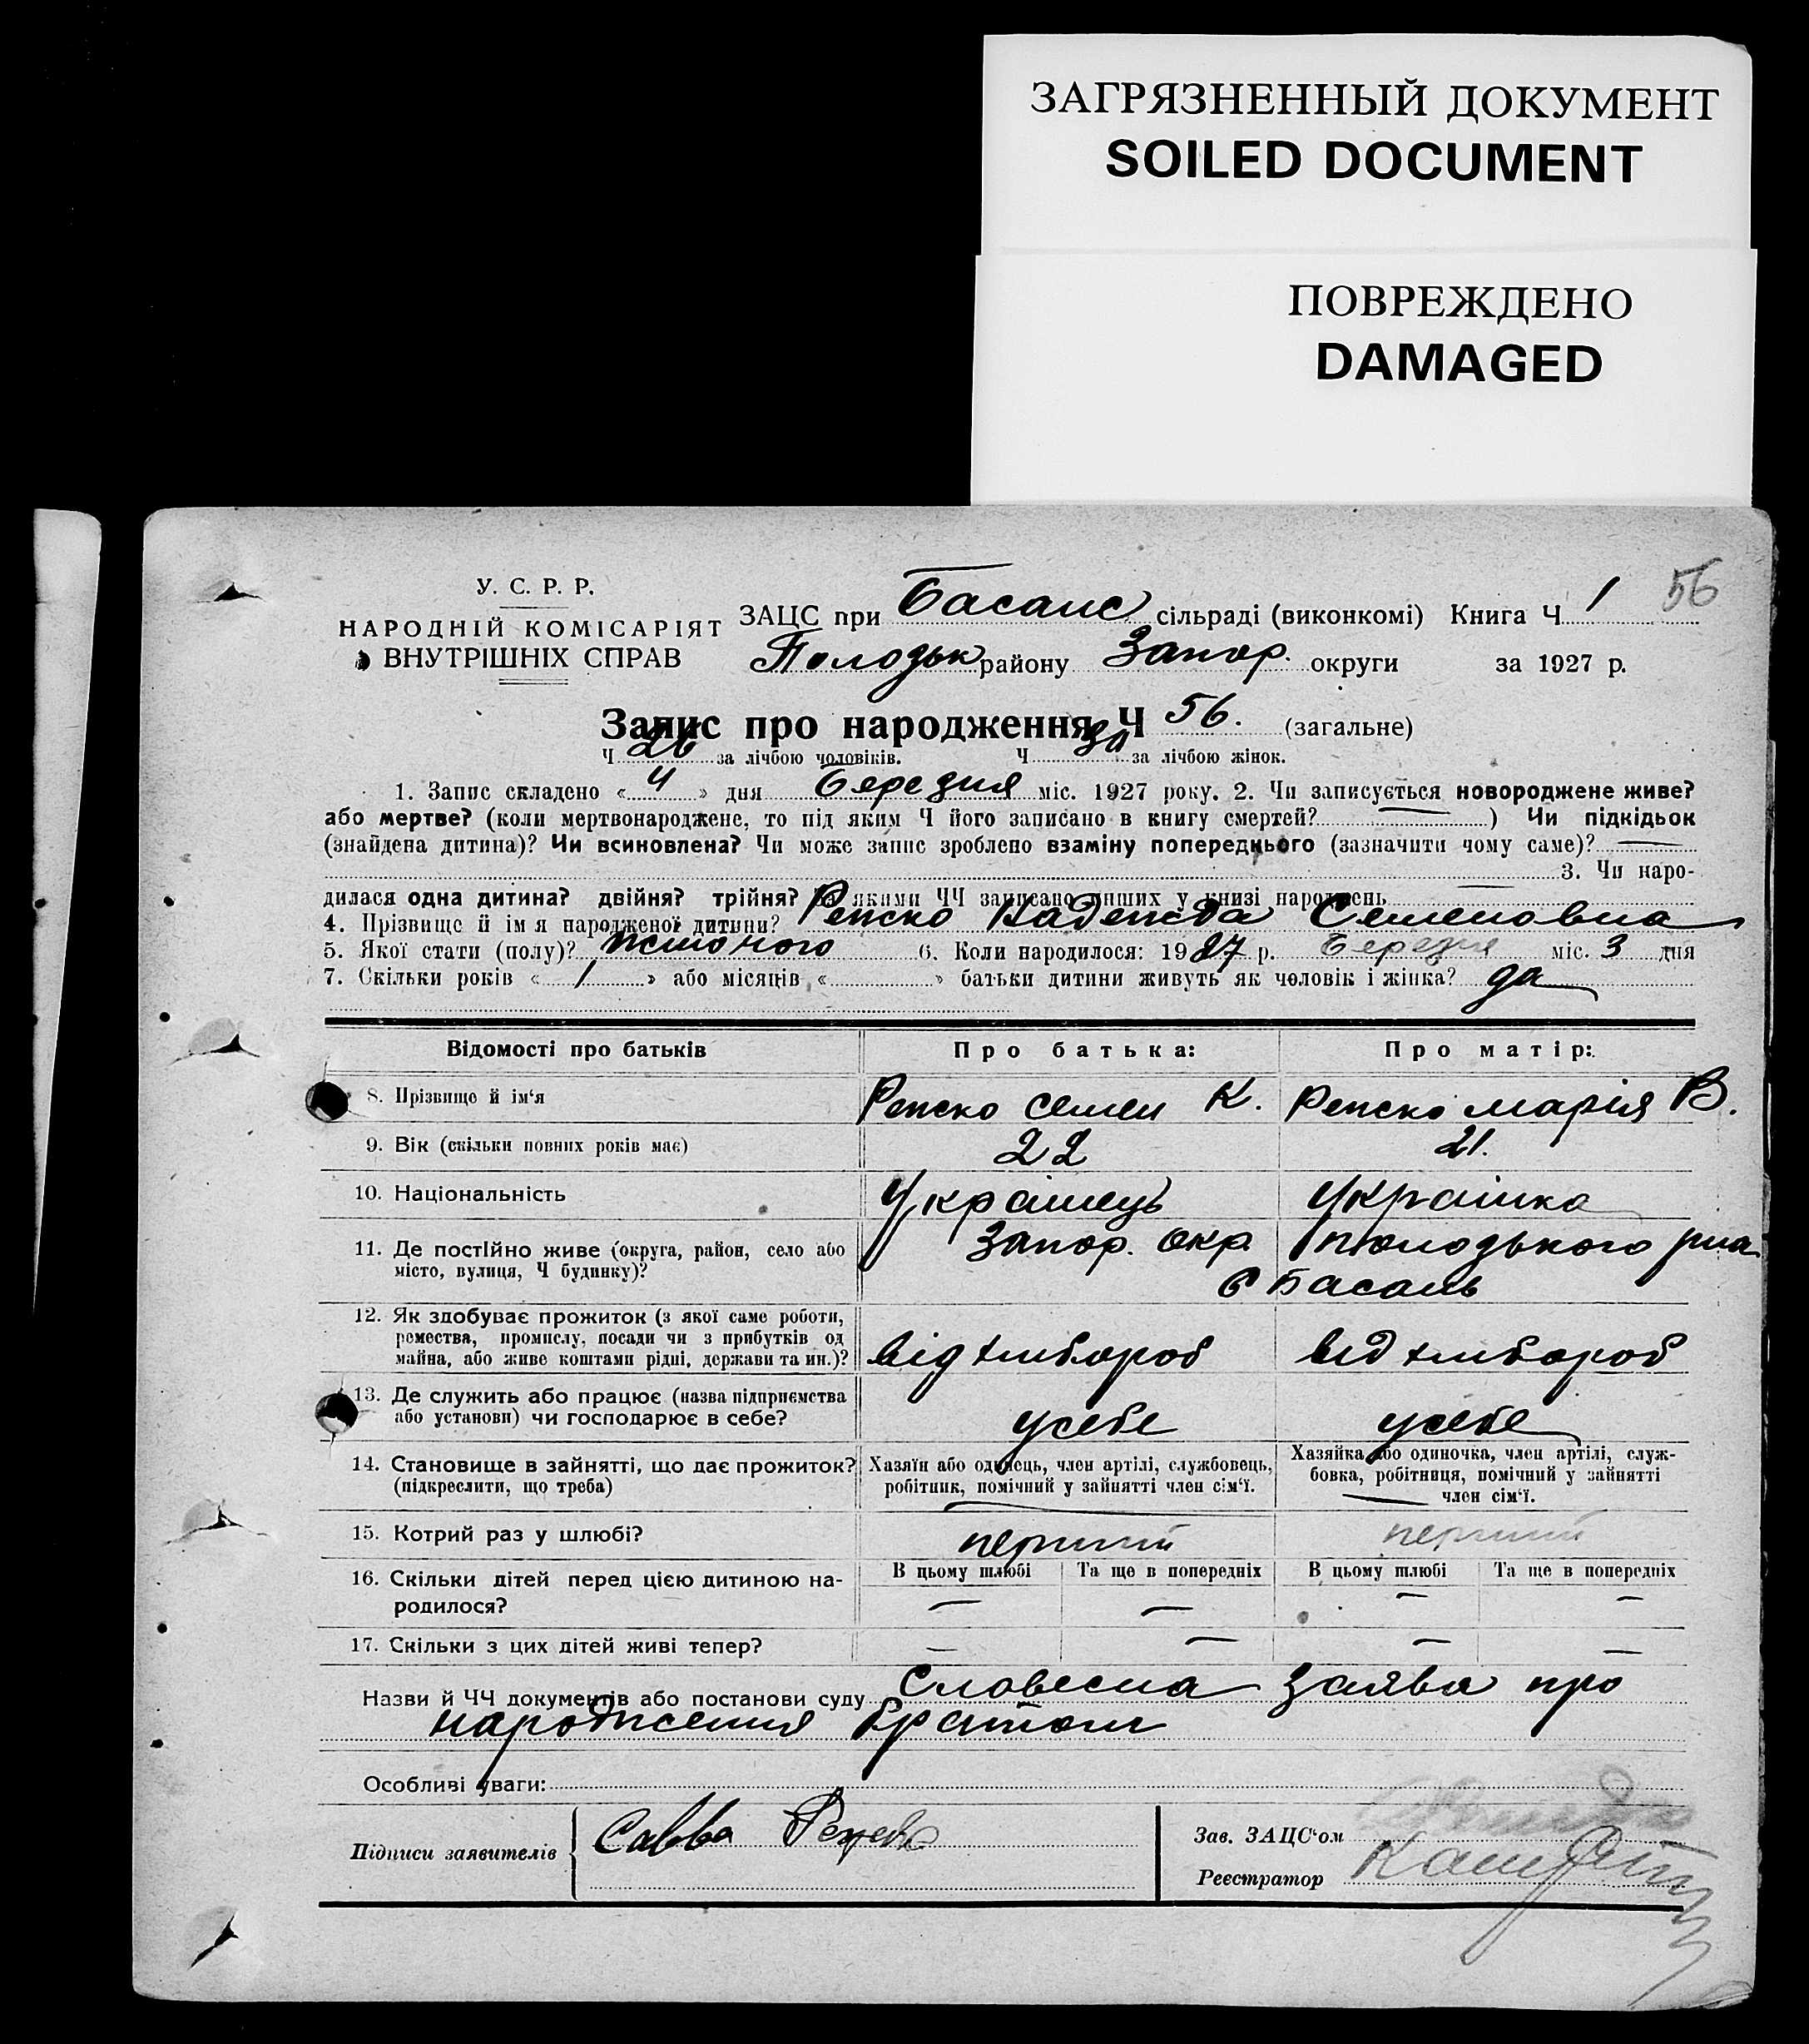 ЗАГРЯЗНЕННЫЙ ДОКУМЕНТ
SOILED DOCUMENT
ПОВРЕЖДЕНО
DAMAGED
56
У. С. Р. Р.
НАРОДНІЙ КОМІСАРІЯТ
ВНУТРІШНІХ СПРАВ
ЗАЦС при Басанс сільраді (виконкомі) Книга Ч 1
Пологськ району Запор. округи за 1927 р.
Запис про народження Ч 56. (загальне)
Ч 26 за лічбою чоловіків. Ч 30 за лічбою жінок.
1. Запис складено « 4 » дня березня міс. 1927 року. 2. Чи записується новороджене живе?
або мертве? (коли мертвонароджене, то під яким Ч його записано в книгу смертей? —) Чи підкідьок
(знайдена дитина)? Чи всиновлена? Чи може запис зроблено взаміну попереднього (зазначити чому саме)? —
3. Чи наро-
дилася одна дитина? двійня? трійня? За якими ЧЧ записано инших у книзі народжень —
4. Прізвище й імя народженої дитини? Репско Надежда Семеновна
5. Якої стати (полу)? жіночого 6. Коли народилося: 1927 р. березня міс. 3 дня
7. Скільки років « 1 » або місяців « » батьки дитини живуть як чоловік і жінка? да
Відомості про батьків Про батька: Про матір:
8. Прізвище й ім‘я Репско Семен К. Репско Марія В.
9. Вік (скільки повних років має) 22 21.
10. Національність Українець Українка
11. Де постійно живе (округа, район, село або Запор. окр. Пологського р-на
місто, вулиця, Ч будинку)? с Басань
12. Як здобуває прожиток (з якої саме роботи,
ремества, промислу, посади чи з прибутків од
майна, або живе коштами рідні, держави та ин.)? від хлібороб від хлібороб
13. Де служить або працює (назва підприємства
або установи) чи господарює в себе? усебе усебе
14. Становище в зайнятті, що дає прожиток?
(підкреслити, що треба)
Хазяїн або одинець, член артілі, службовець,
робітник, помічний у зайнятті член сім‘ї.
Хазяйка або одиночка, член артілі, служ-
бовка, робітниця, помічний у зайнятті
член сім‘ї.
15. Котрий раз у шлюбі? перший перший
В цьому шлюбі Та ще в попередніх В цьому шлюбі Та ще в попередніх
16. Скільки дітей перед цією дитиною на-
родилося? — — — —
17. Скільки з цих дітей живі тепер? — — — —
Назви й ЧЧ документів або постанови суду Словесна заява про
народження братом
Особливі уваги:
Підписи заявителів Савва Репско
Зав. ЗАЦС‘ом
Реєстратор